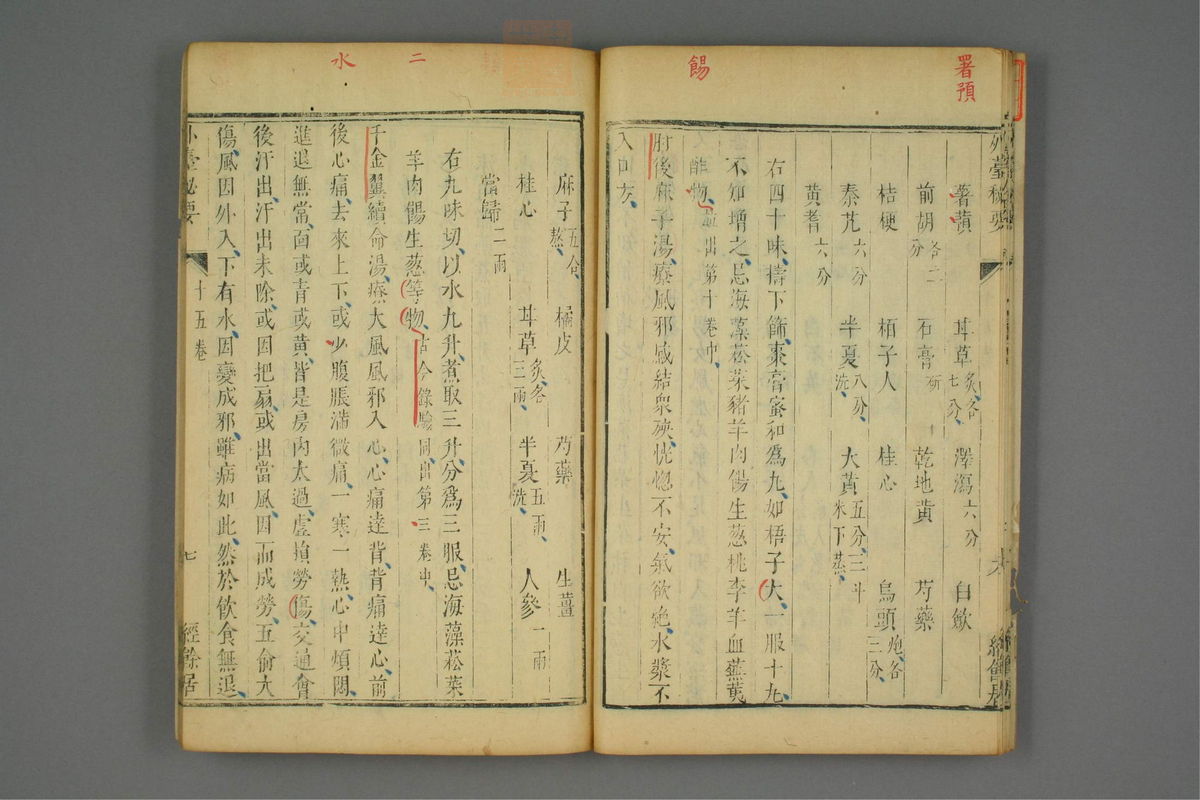 署預
餳
外臺秘要
薯蕷 甘草炙各七分 澤瀉六分 白歛
前胡各二分 石膏研 乾地黄 芍藥
桔梗 栢子人 桂心 烏頭炮各三分
秦艽六分 半夏八分洗 大黄五分三斗米下蒸
黄耆六分
右四十味擣下篩棗膏蜜和爲丸如梧子大一服十丸
不知增之忌海藻菘菜豬羊肉餳生葱桃李羊血蕪荑
酢物並出第十卷中
肘後麻子湯療風邪感結衆殃恍惚不安氣欲絶水漿不
入口方
二
水
麻子五合熬 橘皮 芍藥 生薑
桂心 甘草炙各三兩 半夏五兩洗 人參一兩
當歸二兩
右九味切以水九升煮取三升分爲三服忌海藻菘菜
羊肉餳生葱等物古今錄驗同出第三卷中
千金翼續命湯療大風風邪入心心痛達背背痛達心前
後心痛去來上下或少腹脹滿微痛一寒一熱心中煩悶
進退無常面或青或黄皆是房内太過虛損勞傷交通會
後汗出汗出未除或因把扇或出當風因而成勞五俞大
傷風因外入下有水因變成邪雖病如此然於飲食無退
外臺秘要 十五卷 七 經餘居